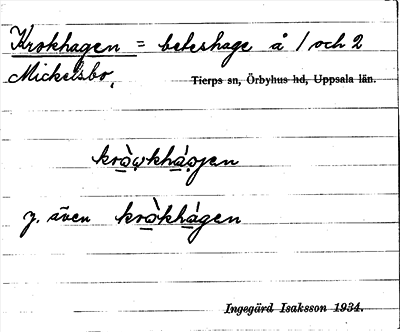 Krokhagen = beteshage å 1 och 2
Mickelsbo, Tierps sn, Örbyhus hd, Uppsala län.
krò̱ǫkhá̱ǫgen
y. även krò̱khá̱gen
Ingegärd Isaksson 1934.